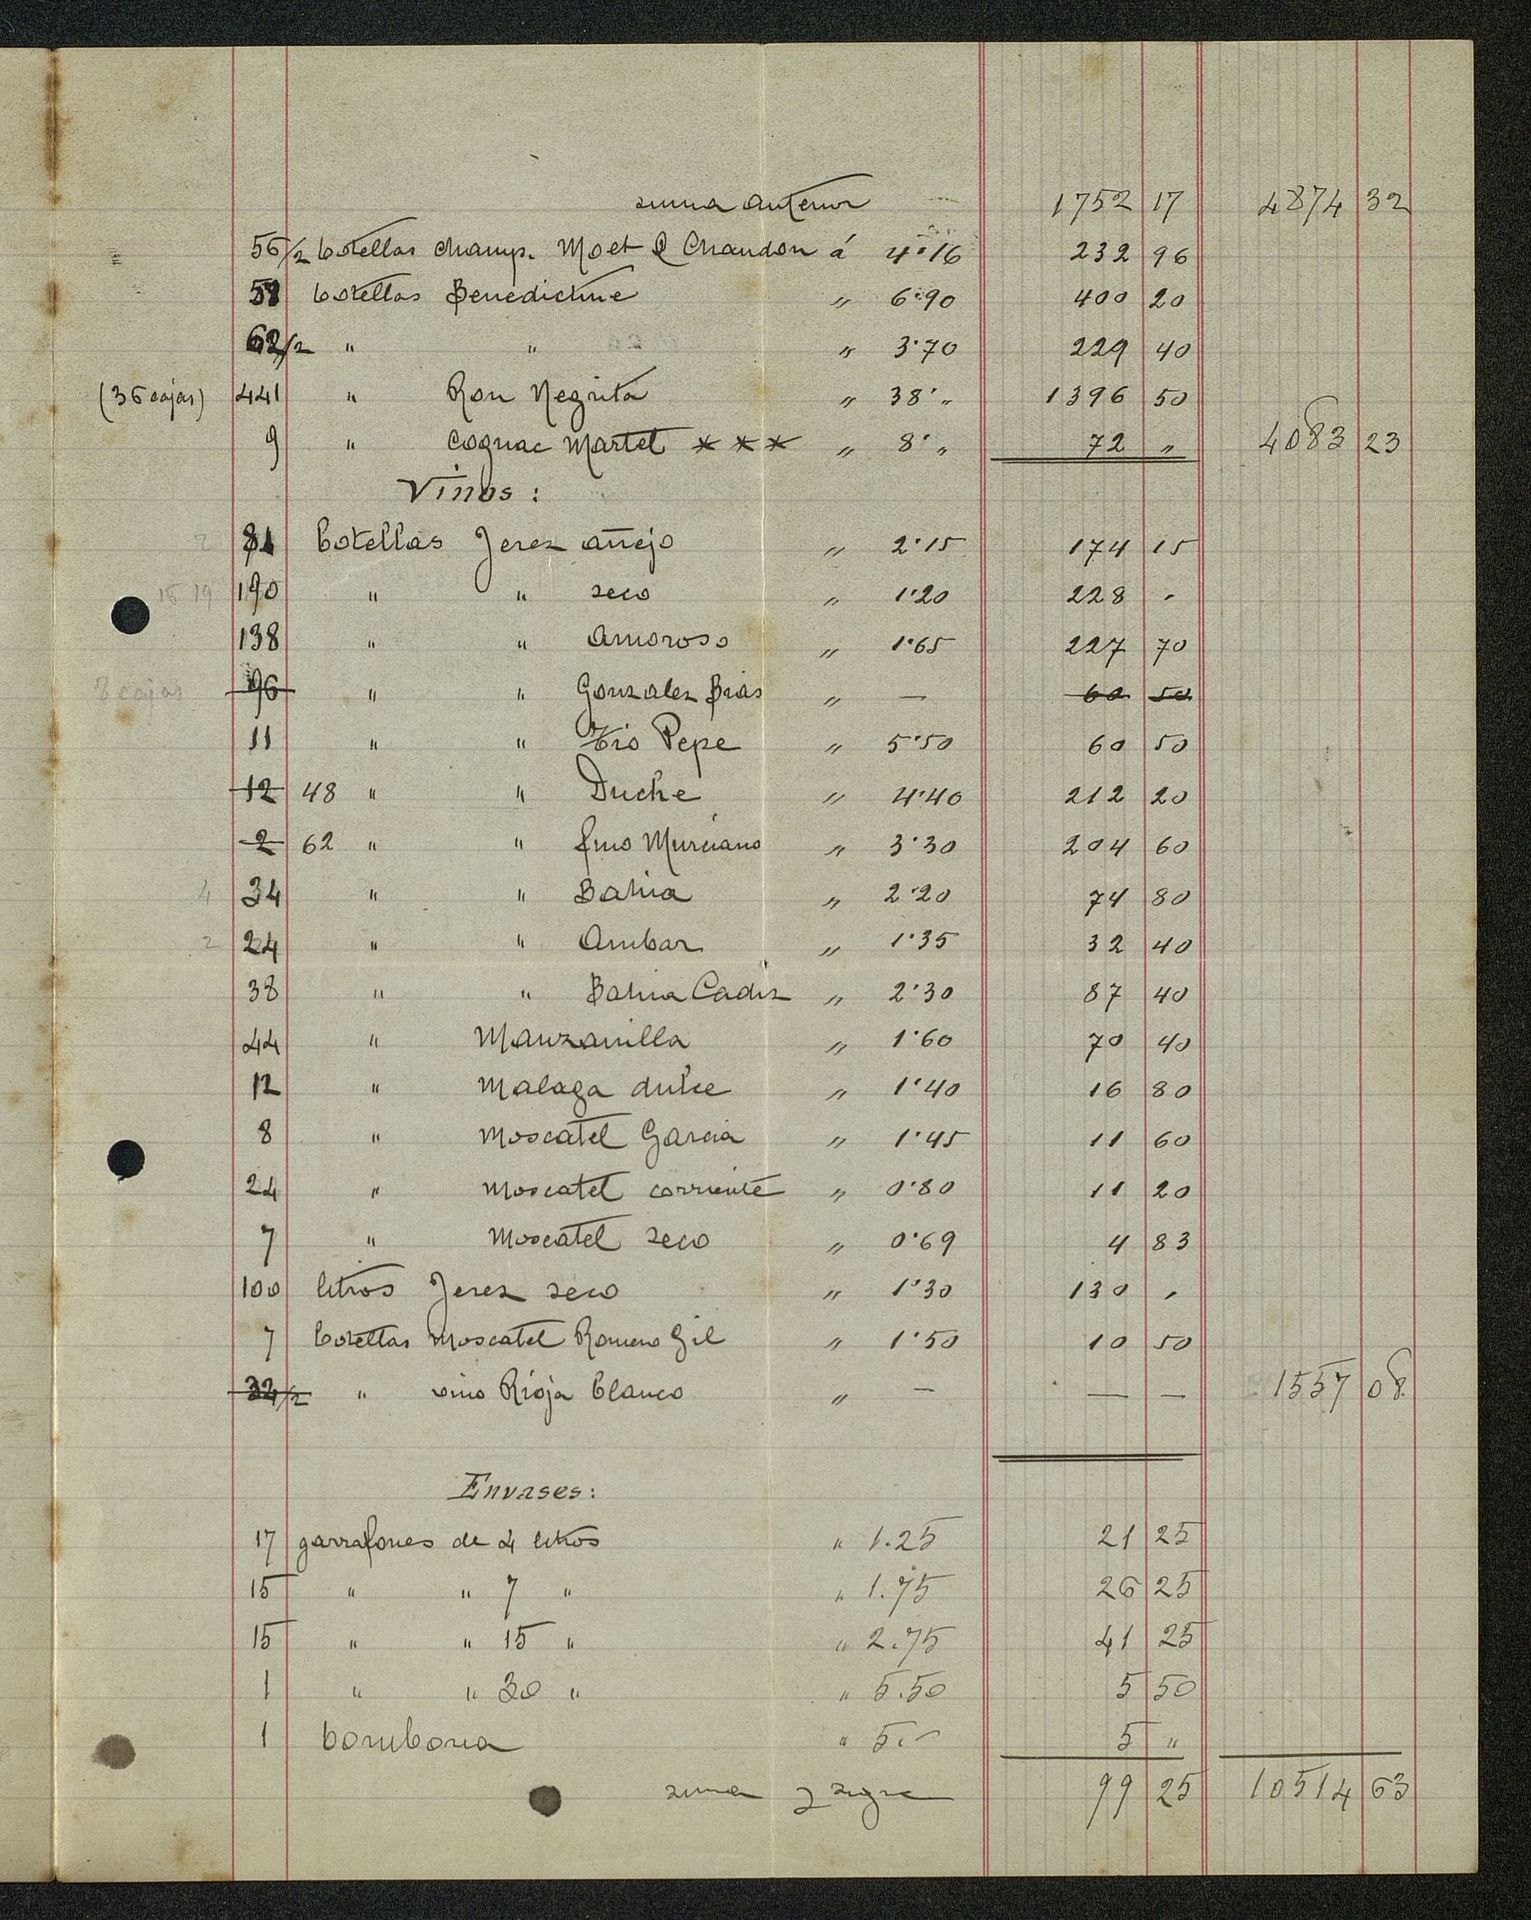 suma anterior 1752 17 4874 32
56/2 botellas champ. Moet & Chandon á 4'16 232 96
58 botellas Benedictine " 6'90 400 20
62/2 " " " 3'70 229 40
(36 cajas) 441 " Ron Negrita " 38'" 1396 50
9 " Cognac Martel *** " 8'" 72 " 4083 23
Vinos:
2 81 botellas Jerez añejo " 2'15 174 15
18 19 190 " " seco " 1'20 228 "
138 " " Amoroso " 1'65 227 70
8 cajas 96 " " Gonzalez Bias " — 60 50
11 " " Tio Pepe " 5'50 60 50
12 48 " " Duche " 4'40 212 20
2 62 " " fino Murciano " 3'30 204 60
4 34 " " Bahia " 2'20 74 80
2 24 " " Ambar " 1'35 32 40
38 " " Bahia Cadiz " 2'30 87 40
44 " Manzanilla " 1'60 70 40
12 " Malaga dulce " 1'40 16 80
8 " Moscatel Garcia " 1'45 11 60
24 " Moscatel corriente " 0'80 11 20
7 " Moscatel seco " 0'69 4 83
100 litros Jerez seco " 1'30 130 "
7 botellas Moscatel Romero Gil " 1'50 10 50
32/2 " vino Rioja blanco " — — — 1557 08
Envases:
17 garrafones de 4 litros " 1.25 21 25
15 " " 7 " " 1.75 26 25
15 " " 15 " " 2.75 41 25
1 " " 30 " " 5.50 5 50
1 bombona " 5.- 5 "
suma y sigue 99 25 10514 63